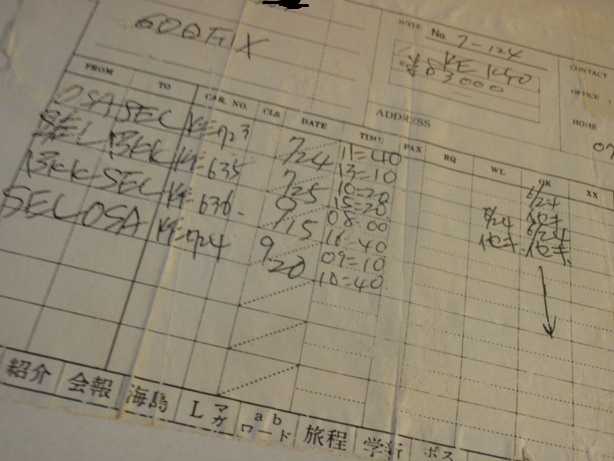 600 FIX
DATE No. 7-124
KE 1040
¥83000
CONTACT
OFFICE
HOME 07
ADDRESS
FROM TO CAR. NO. CLS DATE TIME PAX RQ WL OK XX
OSA SEL KE 723 7/24 11=40 13=10 6/24
SEL BKK KE 635 7/25 10=20
BKK SEL KE 636 9/15 08=00 16=40 8/24 6/24
SEL OSA KE 724 9 20 09=10 10=40
紹介 会報 海島 Lマガ abロード 旅程 学祈 ポス